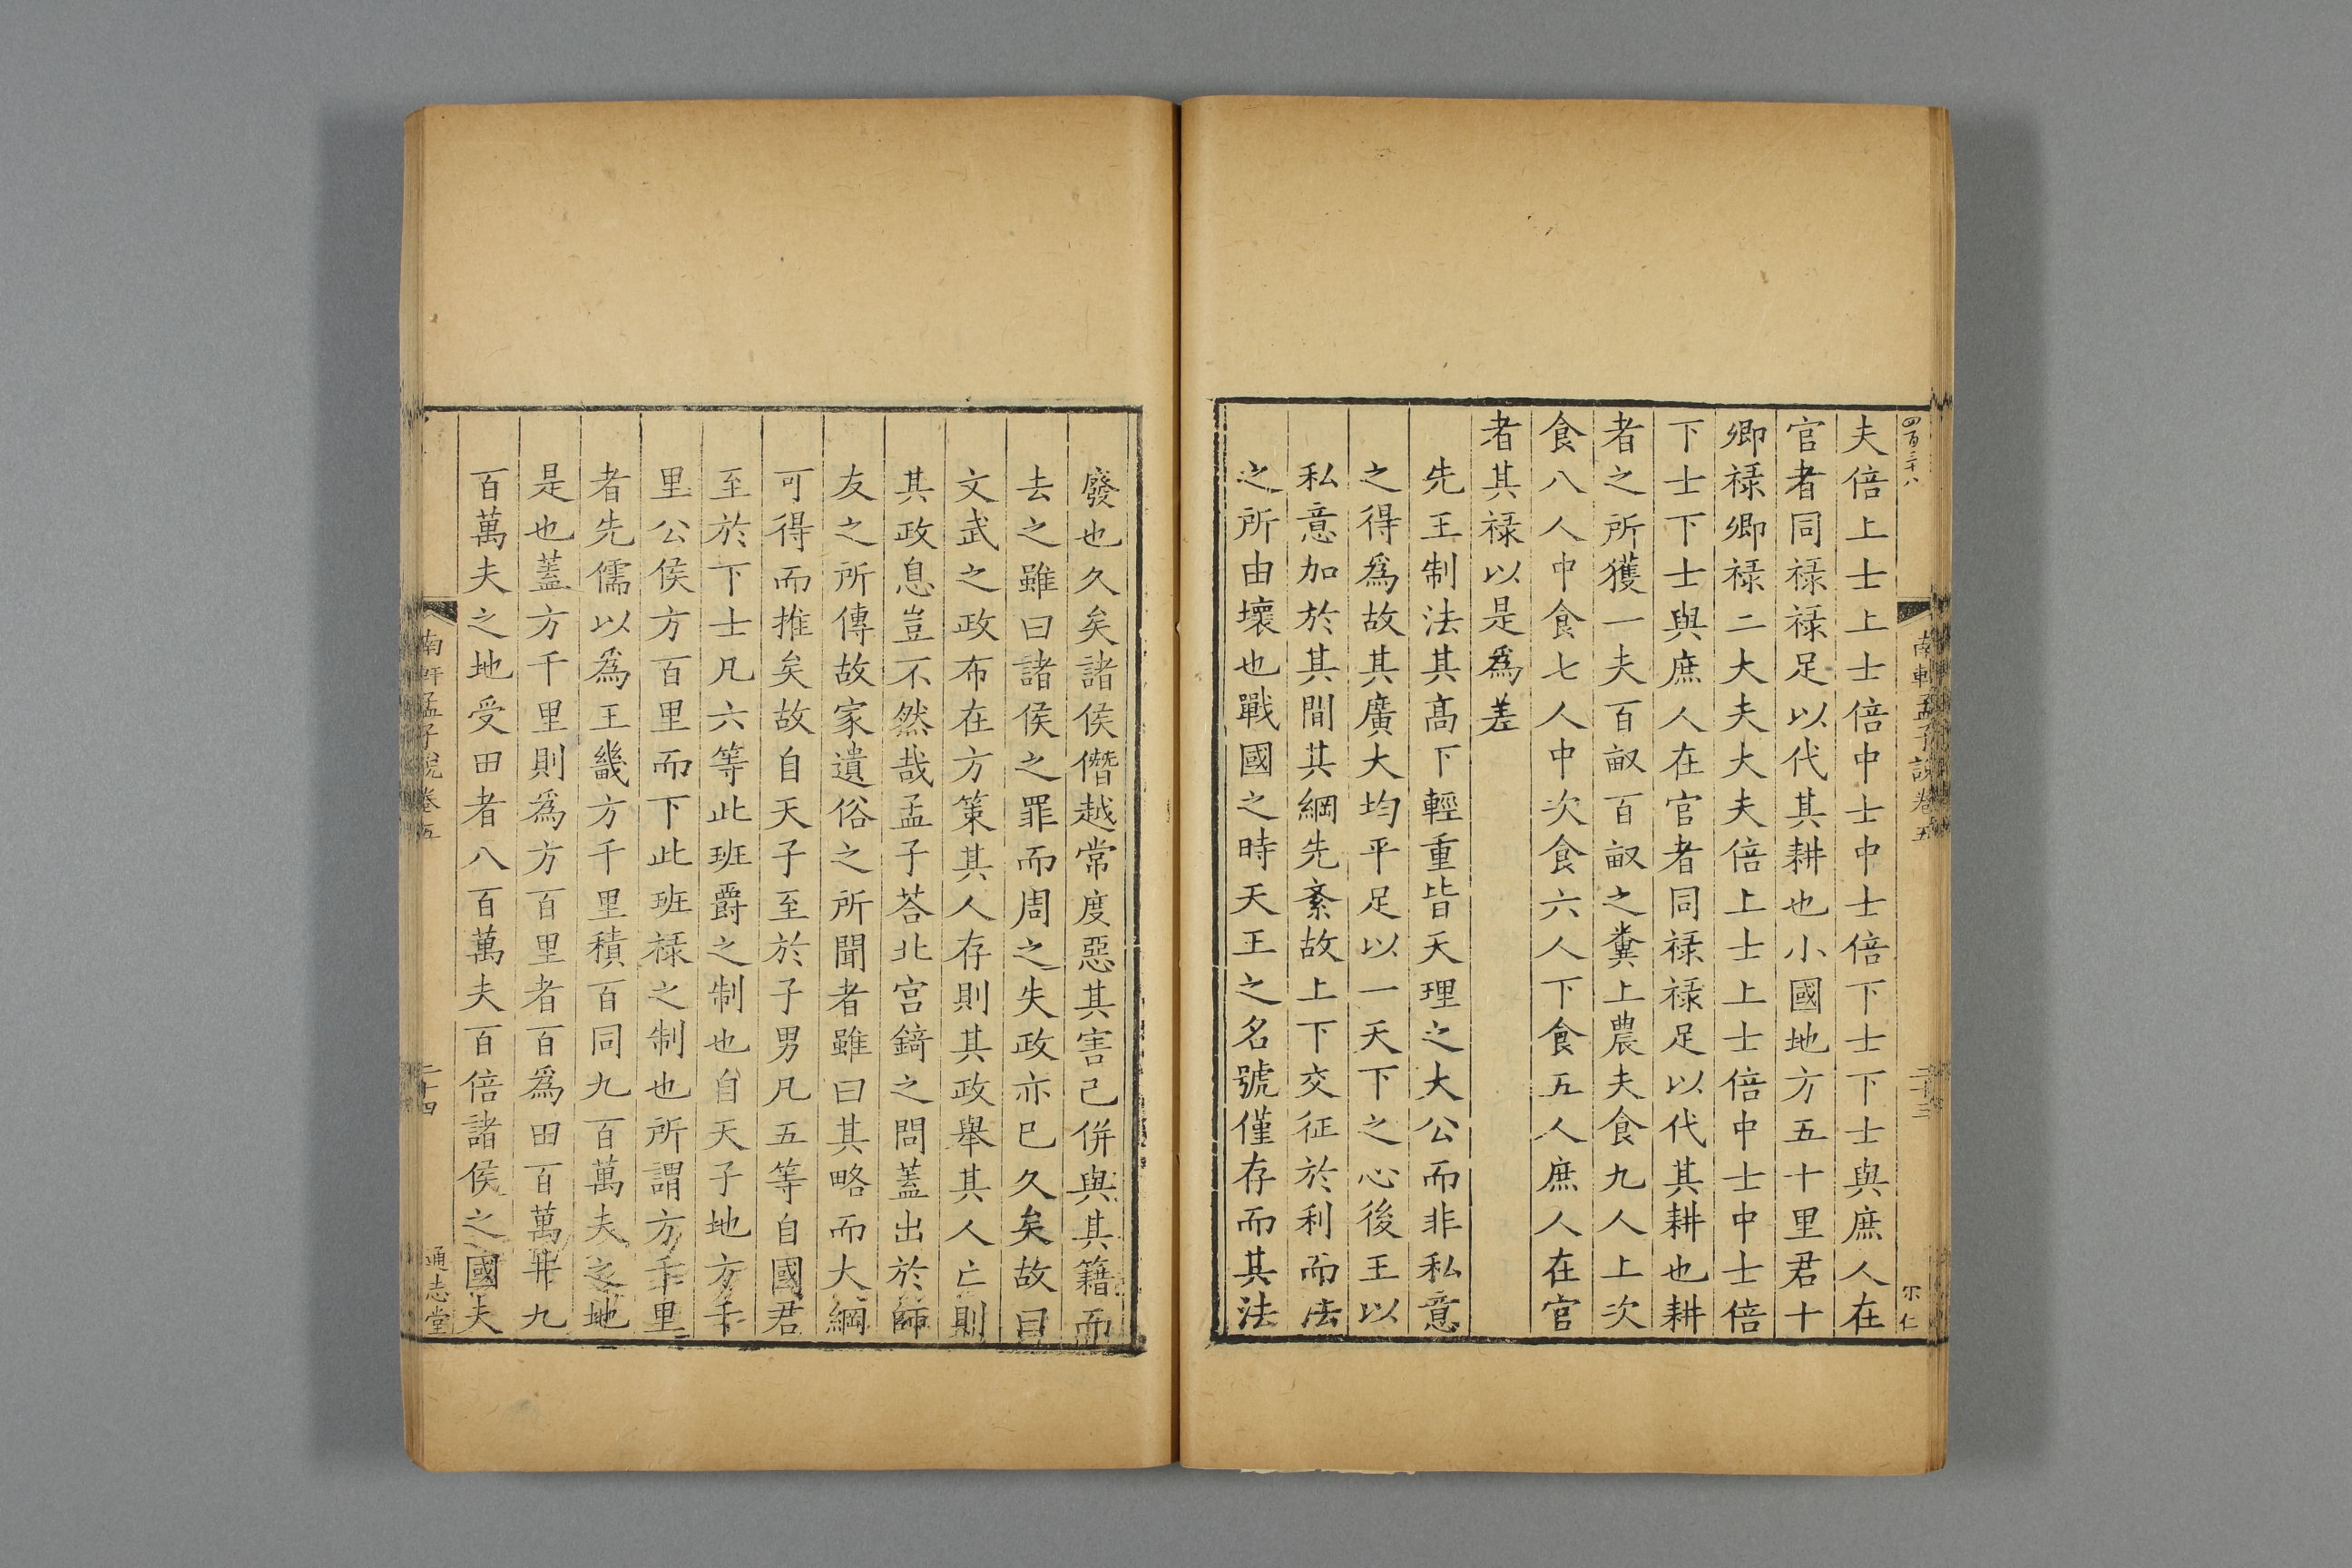 四百三十八
南軒孟子說卷五
二十三
仁
夫倍上士上士倍中士中士倍下士下士與庶人在
官者同禄禄足以代其耕也小國地方五十里君十
卿禄卿禄二大夫大夫倍上士上士倍中士中士倍
下士下士與庶人在官者同禄禄足以代其耕也耕
者之所獲一夫百畝百畝之糞上農夫食九人上次
食八人中食七人中次食六人下食五人庶人在官
者其禄以是爲差
先王制法其髙下輕重皆天理之大公而非私意
之得爲故其廣大均平足以一天下之心後王以
私意加於其間其綱先紊故上下交征於利而法
之所由壞也戰國之時天王之名號僅存而其法
廢也久矣諸侯僭越常度惡其害己併與其籍而
去之雖曰諸侯之罪而周之失政亦已久矣故曰
文武之政布在方策其人存則其政舉其人亡則
其政息豈不然哉孟子荅北宫錡之問蓋出於師
友之所傳故家遺俗之所聞者雖曰其略而大綱
可得而推矣故自天子至於子男凡五等自國君
至於下士凡六等此班爵之制也自天子地方千
里公侯方百里而下此班禄之制也所謂方千里
者先儒以爲王畿方千里積百同九百萬夫之地
是也蓋方千里則爲方百里者百爲田百萬井九
百萬夫之地受田者八百萬夫百倍諸侯之國夫
南軒孟子說卷五
二十四
通志堂